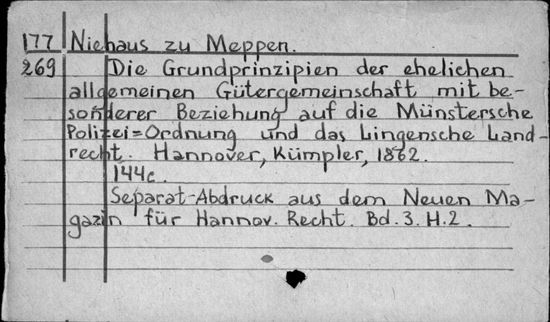 177 Niehaus zu Meppen.
269 Die Grundprinzipien der ehelichen
allgemeinen Gütergemeinschaft mit be-
sonderer Beziehung auf die Münstersche
Polizei=Ordnung und das Lingensche Land-
recht. Hannover, Kümpler, 1862.
144c.
Separat-Abdruck aus dem Neuen Ma-
gazin für Hannov. Recht. Bd. 3. H. 2.